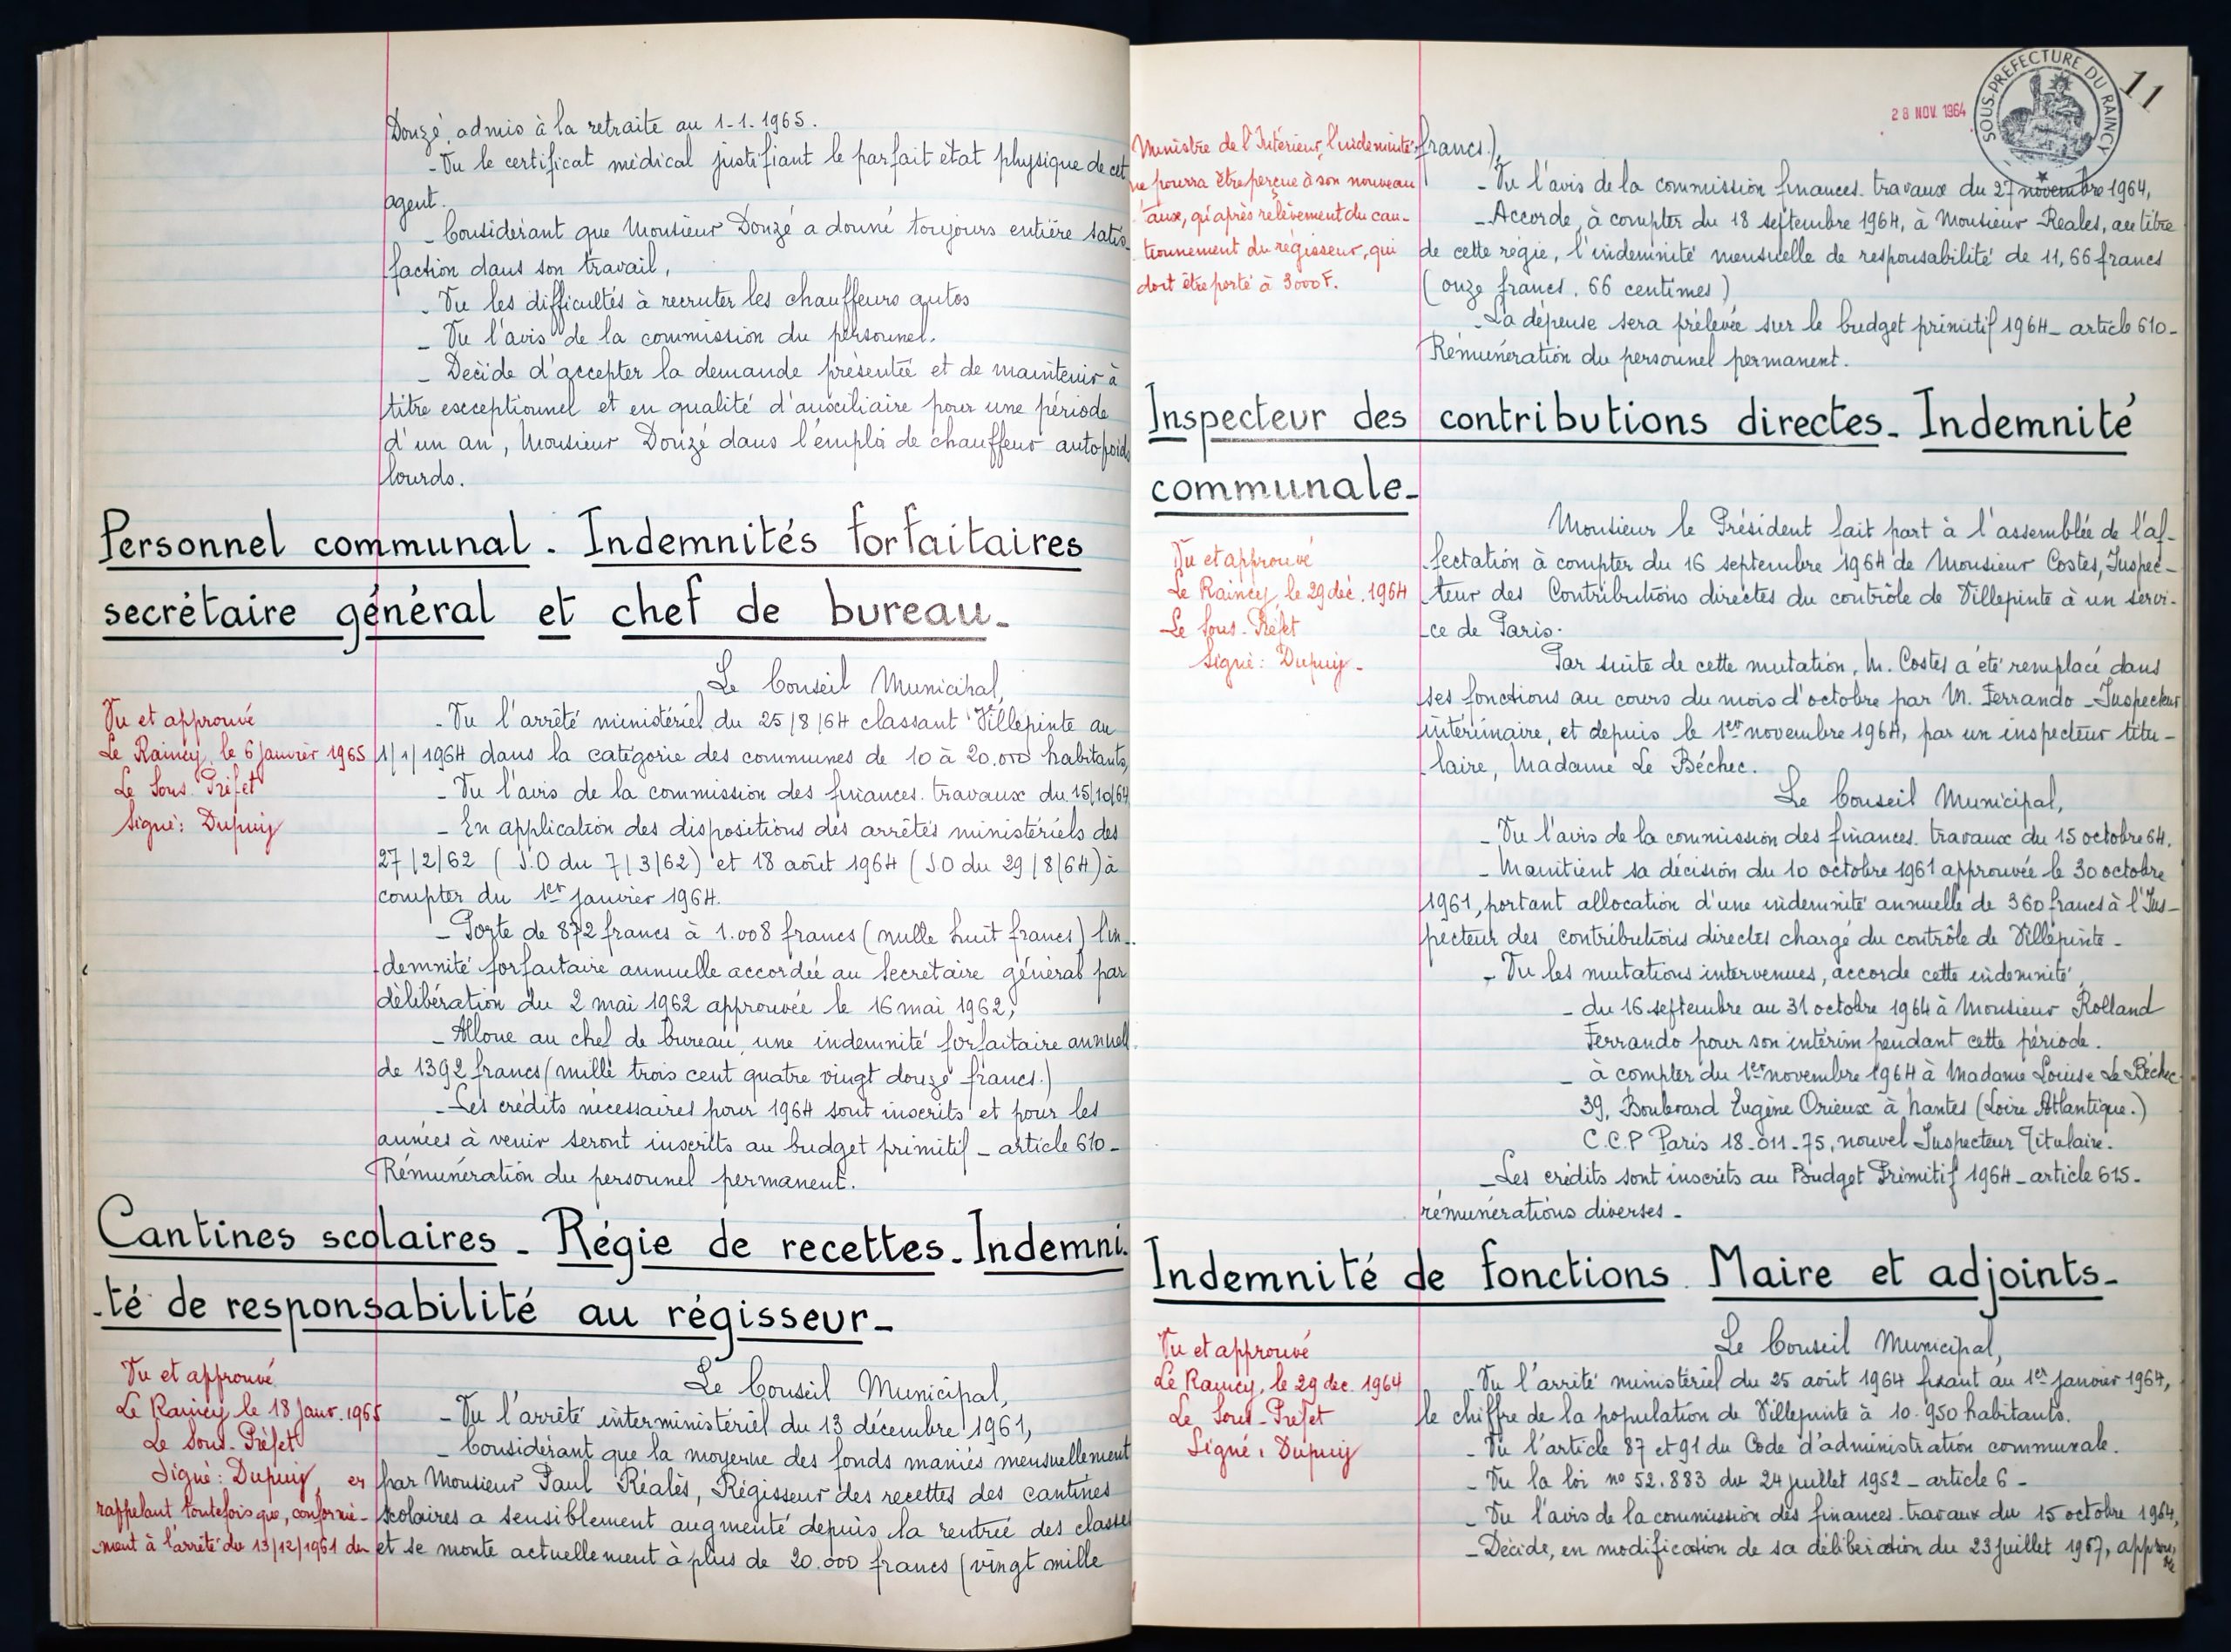 Douzé, admis à la retraite au 1-1-1965.
- Vu le certificat médical justifiant le parfait état physique de cet
agent.
- Considérant que Monsieur Douzé a donné toujours entière satis-
faction dans son travail,
- Vu les difficultés à recruter les chauffeurs autos
- Vu l'avis de la commission du personnel.
- Décide d'accepter la demande présentée et de maintenir à
titre exceptionnel et en qualité d'auxiliaire pour une période
d'un an, Monsieur Douzé dans l'emploi de chauffeur auto poids
lourds.
Personnel communal. Indemnités forfaitaires
secrétaire général et chef de bureau-
Le Conseil Municipal,
Vu et approuvé
Le Raincy, le 6 janvier 1965
Le Sous-Préfet
Signé: Dupuy
- Vu l'arrêté ministériel du 25/8/64 classant Villepinte au
1/1/1964 dans la catégorie des communes de 10 à 20.000 habitants,
- Vu l'avis de la commission des finances. travaux du 15/10/64
- En application des dispositions des arrêtés ministériels des
27/2/62 (J.O du 7/3/62) et 18 août 1964 (J.O du 29/8/64) à
compter du 1er janvier 1964.
- Porte de 872 francs à 1.008 francs (mille huit francs) l'in-
demnité forfaitaire annuelle accordée au Secrétaire général par
délibération du 2 mai 1962 approuvée le 16 mai 1962,
- Alloue au chef de bureau, une indemnité forfaitaire annuell
de 1392 francs (mille trois cent quatre vingt douze francs.)
- Les crédits nécessaires pour 1964 sont inscrits et pour les
années à venir seront inscrits au budget primitif - article 610-
Rémunération du personnel permanent.
Cantines scolaires - Régie de recettes - Indemni-
-té de responsabilité au régisseur-
Le Conseil Municipal,
Vu et approuvé
Le Raincy le 18 janv. 1965
Le Sous-Préfet
Signé: Dupuy, en
rappelant toutefois que, conformé-
ment à l'arrêté du 13/12/1961 du
- Vu l'arrêté interministériel du 13 décembre 1961,
- Considérant que la moyenne des fonds maniés mensuellement
par Monsieur Paul Réalès, Régisseur des recettes des cantines
scolaires a sensiblement augmenté depuis la rentrée des classes
et se monte actuellement à plus de 20.000 francs (vingt mille
28 NOV. 1964
SOUS-PRÉFECTURE DU RAINCY
11
Ministre de l'Intérieur, l'indemnité
ne pourra être perçue à son nouveau
taux, qu'après relèvement du cau-
tionnement du régisseur, qui
doit être porté à 3000 F.
francs.),
- Vu l'avis de la commission finances. travaux du 27 novembre 1964,
- Accorde, à compter du 18 septembre 1964, à Monsieur Reales, au titre
de cette régie, l'indemnité mensuelle de responsabilité de 11,66 francs
(onze francs. 66 centimes)
- La dépense sera prélevée sur le budget primitif 1964 - article 610-
Rémunération du personnel permanent.
Inspecteur des contributions directes - Indemnité
communale-
Vu et approuvé
Le Raincy, le 29 déc. 1964
Le Sous-Préfet
Signé: Dupuy-
Monsieur le Président fait part à l'assemblée de l'af-
fectation à compter du 16 septembre 1964 de Monsieur Costes, Inspec-
teur des Contributions directes du contrôle de Villepinte à un servi-
-ce de Paris.
Par suite de cette mutation, M. Costes a été remplacé dans
ses fonctions au cours du mois d'octobre par M. Ferrando - Inspecteur
intérimaire, et depuis le 1er novembre 1964, par un inspecteur titu-
laire, Madame Le Béchec.
Le Conseil Municipal,
- Vu l'avis de la commission des finances. travaux du 15 octobre 64.
- Maintient sa décision du 10 octobre 1961 approuvée le 30 octobre
1961, portant allocation d'une indemnité annuelle de 360 francs à l'Ins-
pecteur des contributions directes chargé du contrôle de Villepinte-
- Vu les mutations intervenues, accorde cette indemnité,
- du 16 septembre au 31 octobre 1964 à Monsieur Rolland
Ferrando pour son intérim pendant cette période.
- à compter du 1er novembre 1964 à Madame Louise Le Béchec
39, Boulevard Eugène Orieux à Nantes (Loire Atlantique.)
C.C.P Paris 18-011-75, nouvel Inspecteur Titulaire.
- Les crédits sont inscrits au Budget Primitif 1964 - article 615-
rémunérations diverses -
Indemnité de fonctions. Maire et adjoints-
Le Conseil Municipal,
Vu et approuvé
Le Raincy, le 29 dec. 1964
Le Sous-Préfet
Signé: Dupuy
- Vu l'arrêté ministériel du 25 août 1964 fixant au 1er janvier 1964,
le chiffre de la population de Villepinte à 10.950 habitants.
- Vu l'article 87 et 91 du Code d'administration communale.
- Vu la loi no 52.883 du 24 juillet 1952 - article 6 -
- Vu l'avis de la commission des finances. travaux du 15 octobre 1964,
- Décide, en modification de sa délibération du 23 juillet 1957, approu-
vée